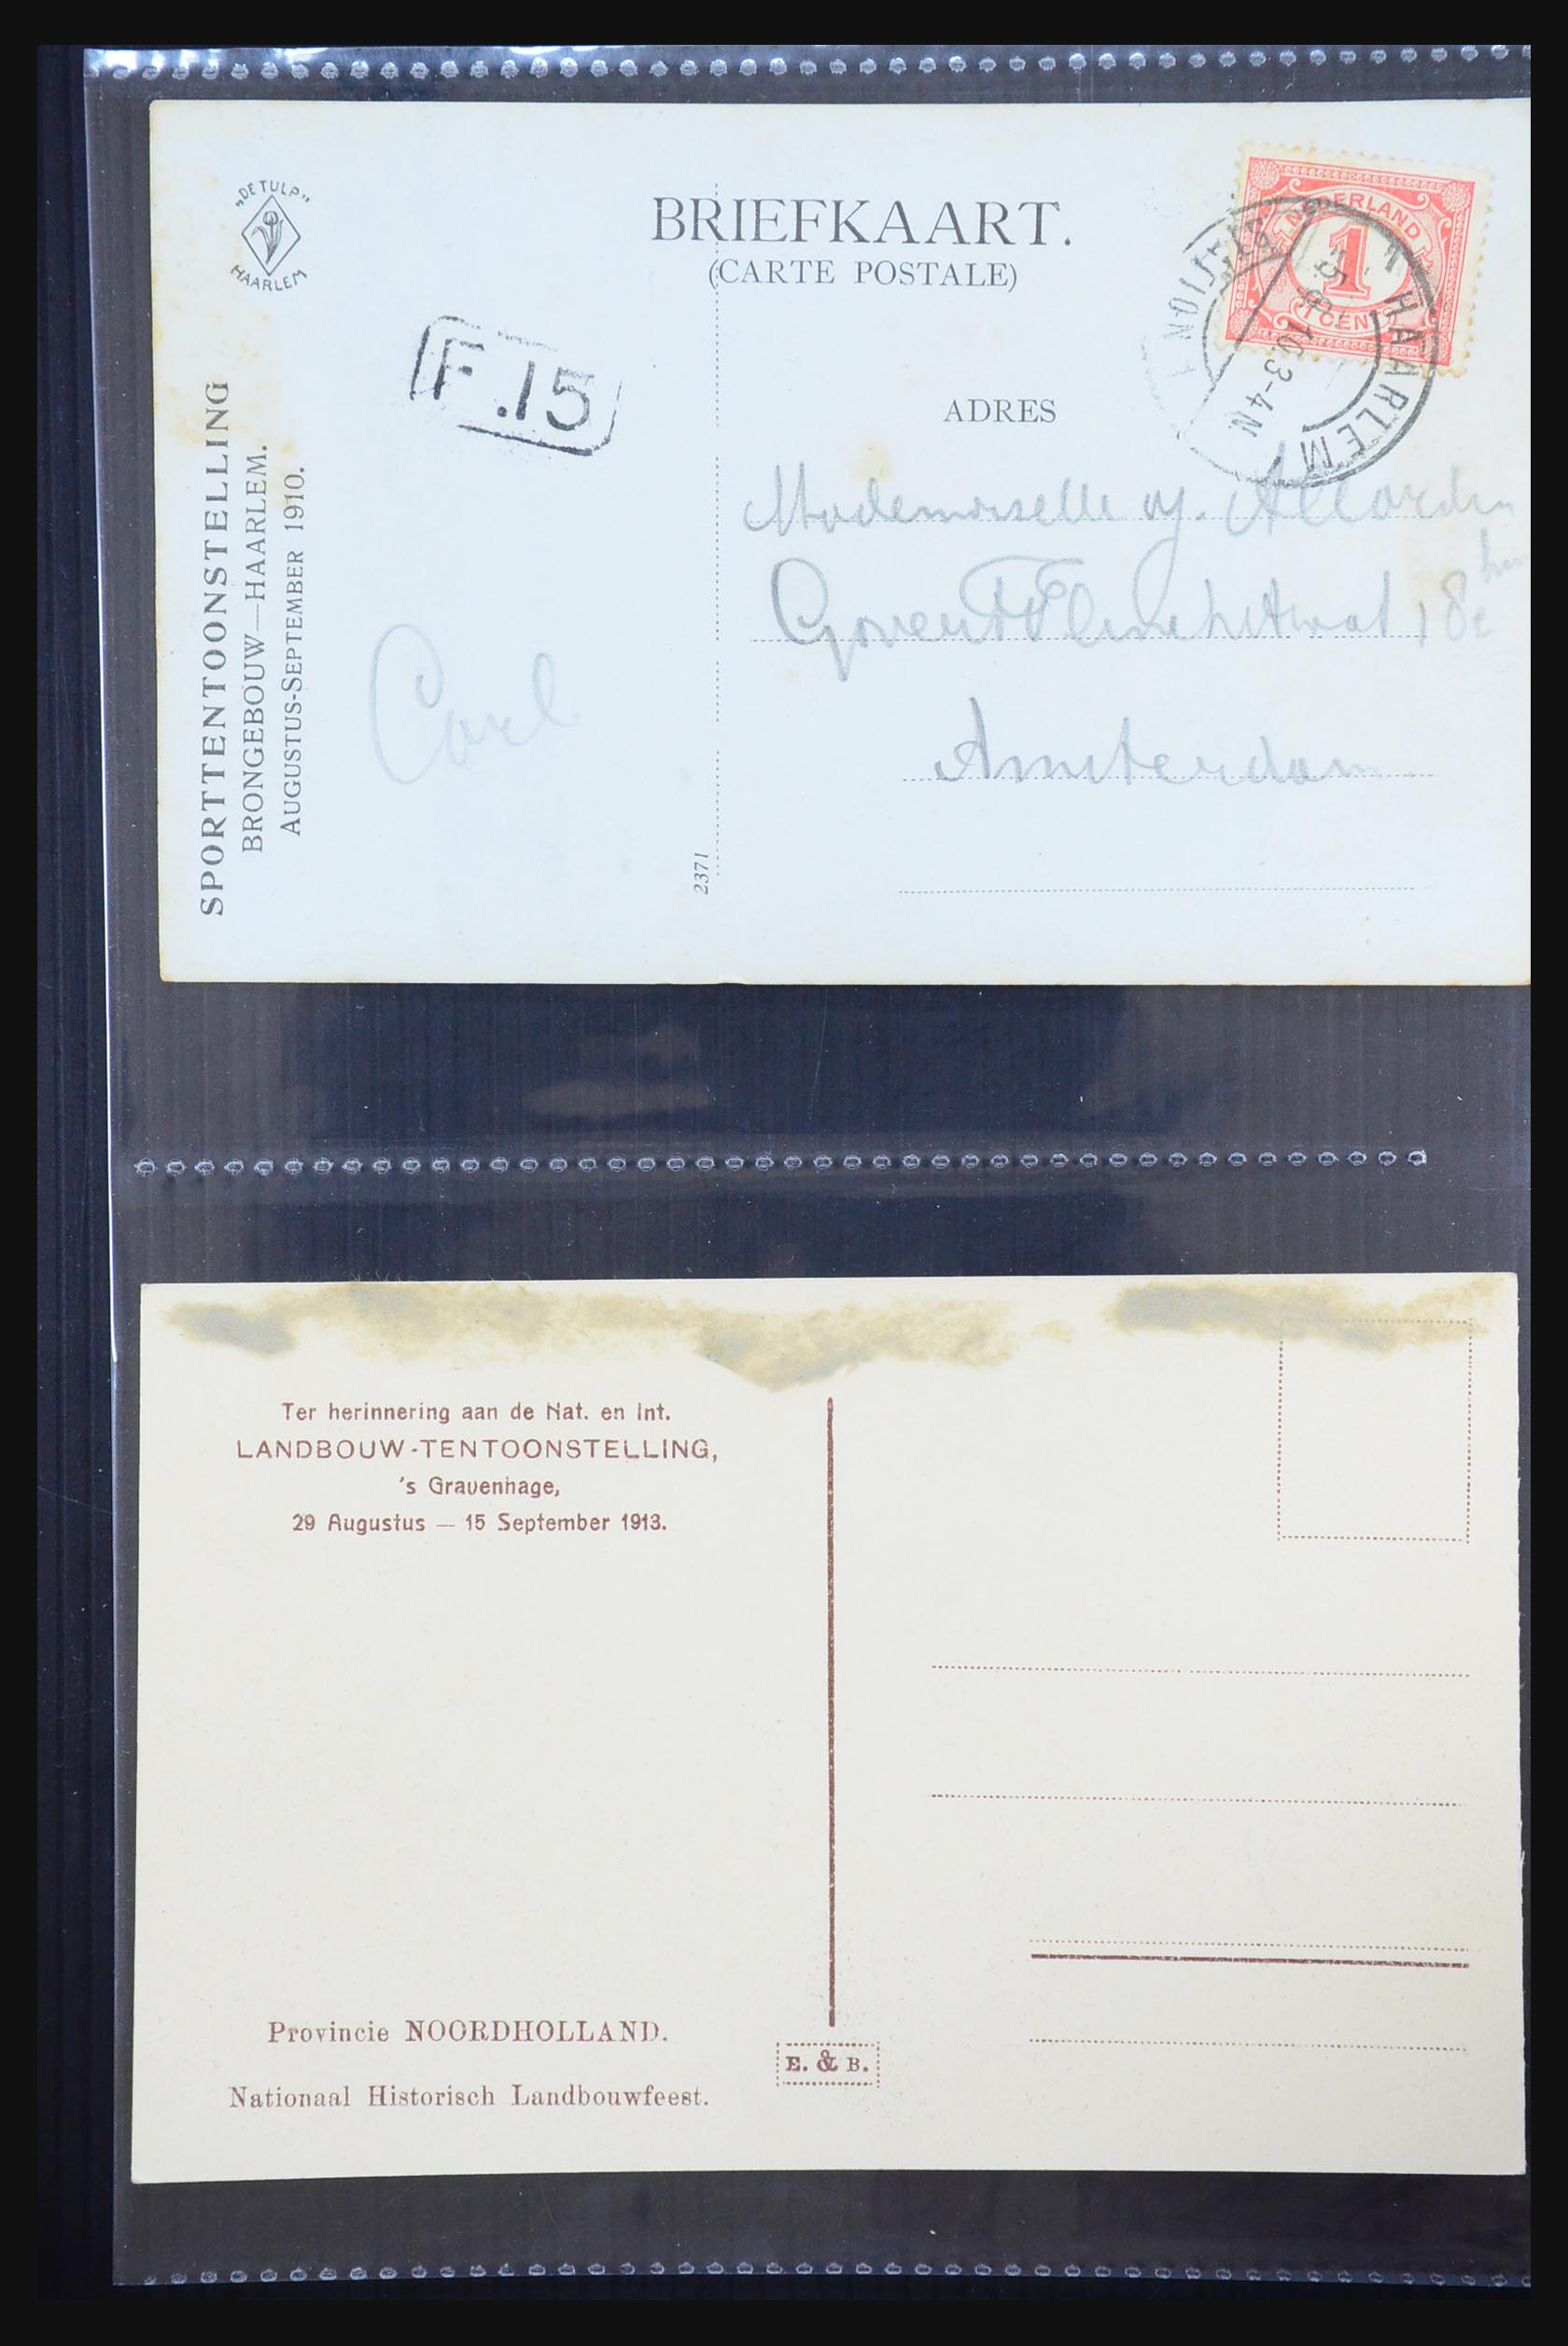 „DE TULP”
HAARLEM
BRIEFKAART.
(CARTE POSTALE)
NEDERLAND
1
1 CENT
HAARLEM
STATION 1
5.9.10.3-4N
F.15
ADRES
SPORTTENTOONSTELLING
BRONGEBOUW—HAARLEM.
AUGUSTUS-SEPTEMBER 1910.
Mademoiselle
Govert Flinckstraat 18c
Amsterdam
Carl
2371
Ter herinnering aan de Nat. en Int.
LANDBOUW-TENTOONSTELLING,
's Gravenhage,
29 Augustus — 15 September 1913.
Provincie NOORDHOLLAND.
Nationaal Historisch Landbouwfeest.
E. & B.